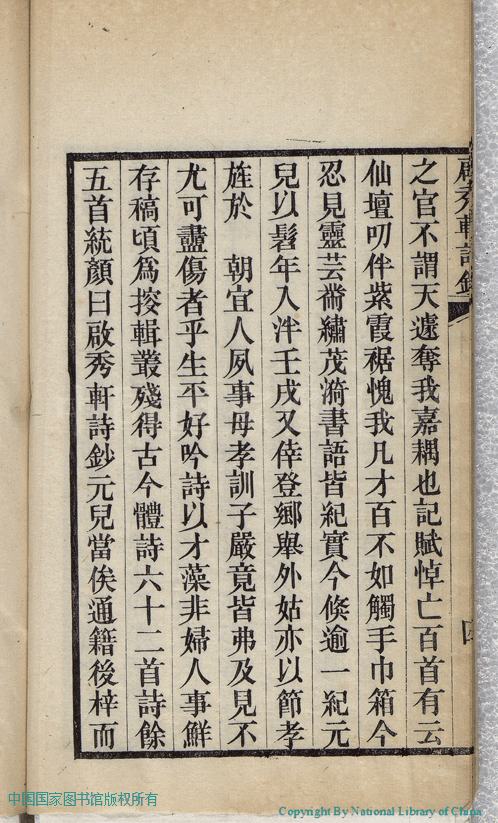 啟秀軒詩鈔
之官不謂天遽奪我嘉耦也記賦悼亡百首有云
仙壇叨伴紫霞裾愧我凡才百不如觸手巾箱今
忍見靈芸黹繡茂漪書語皆紀實今倏逾一紀元
兒以髫年入泮壬戌又倖登鄉舉外姑亦以節孝
旌於 朝宜人夙事母孝訓子嚴竟皆弗及見不
尤可盡傷者乎生平好吟詩以才藻非婦人事鮮
存稿頃為按輯叢殘得古今體詩六十二首詩餘
五首統顏曰啟秀軒詩鈔元兒當俟通籍後梓而
中国国家图书馆版权所有
Copyright By National Library of China